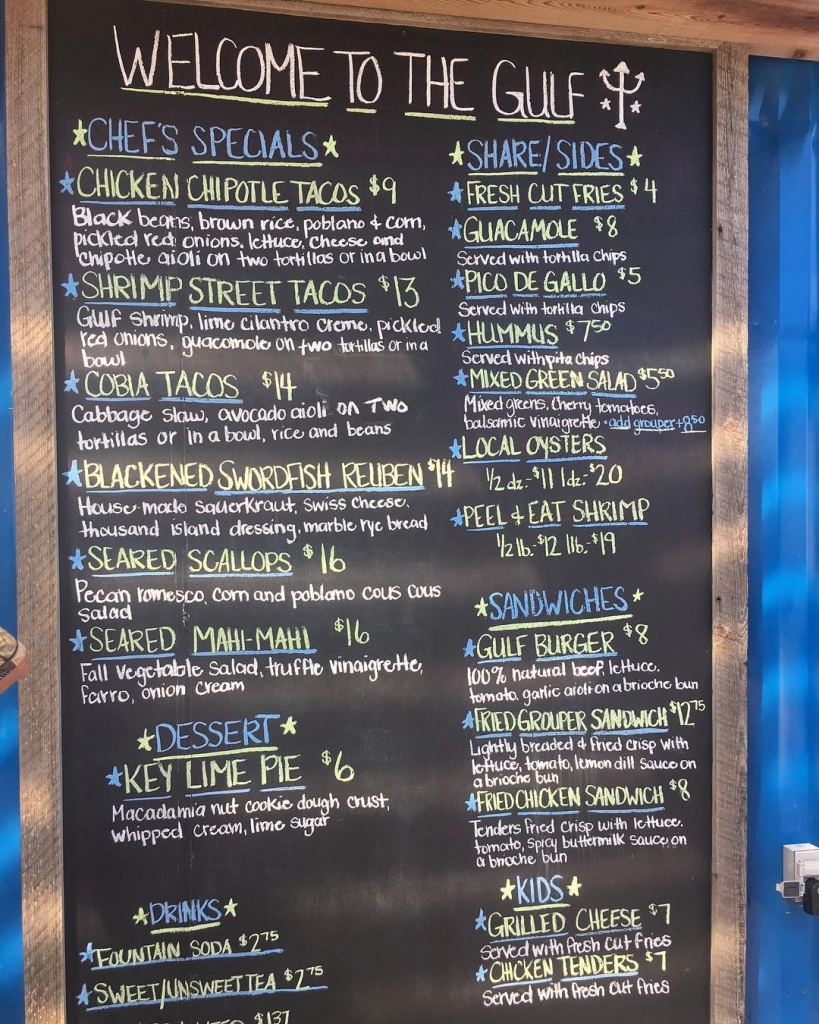 WELCOME TO THE GULF
CHEF'S SPECIALS
CHICKEN CHIPOTLE TACOS $9
Black beans, brown rice, poblano & corn,
pickled red onions, lettuce, cheese and
chipotle aioli on two tortillas or in a bowl
SHRIMP STREET TACOS $13
Gulf shrimp, lime cilantro creme, pickled
red onions, guacomole on two tortillas or in a
bowl
COBIA TACOS $14
Cabbage slaw, avocado aioli on TWO
tortillas or in a bowl, rice and beans
BLACKENED SWORDFISH REUBEN $14
House-made Sauerkraut, Swiss cheese,
thousand island dressing, marble rye bread
SEARED SCALLOPS $16
Pecan romesco, corn and poblano cous cous
salad
SEARED MAHI-MAHI $16
Fall vegetable salad, truffle vinaigrette,
farro, onion cream
DESSERT
KEY LIME PIE $6
Macadamia nut cookie dough crust,
whipped cream, lime sugar
DRINKS
FOUNTAIN SODA $2.75
SWEET/UNSWEET TEA $2.75
$1.37
SHARE/SIDES
FRESH CUT FRIES $4
GUACAMOLE $8
Served with tortilla chips
PICO DE GALLO $5
Served with tortilla chips
HUMMUS $7.50
Served with pita chips
MIXED GREEN SALAD $5.50
Mixed greens, cherry tomatoes,
balsamic vinaigrette • add grouper +8.50
LOCAL OYSTERS
1/2 dz.-$11 1 dz.-$20
PEEL & EAT SHRIMP
1/2 lb.-$12 1 lb.-$19
SANDWICHES
GULF BURGER $8
100% natural beef, lettuce,
tomato, garlic aioli on a brioche bun
FRIED GROUPER SANDWICH $12.75
Lightly breaded & fried crisp with
lettuce, tomato, lemon dill sauce on
a brioche bun
FRIED CHICKEN SANDWICH $8
Tenders fried crisp with lettuce,
tomato, spicy buttermilk sauce on
a brioche bun
KIDS
GRILLED CHEESE $7
Served with fresh cut fries
CHICKEN TENDERS $7
Served with fresh cut fries